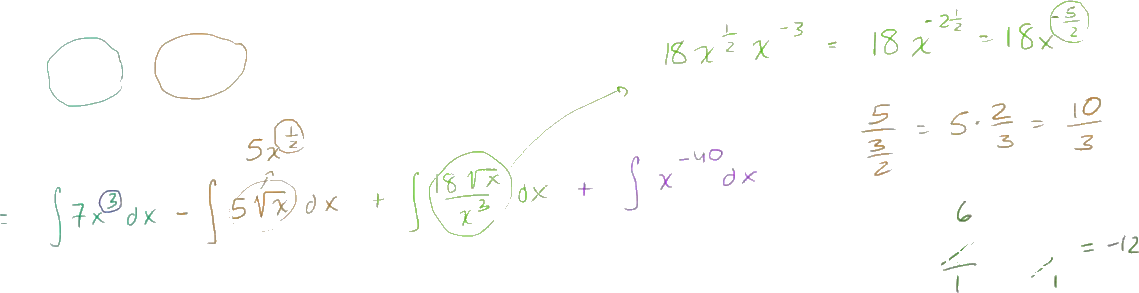 18 x^{1/2} x^{-3} = 18 x^{-2 1/2} = 18x^{-5/2}
5/(3/2) = 5 · 2/3 = 10/3
5x^{1/2}
= ∫ 7x^3 dx - ∫ 5√x dx + ∫ 18√x/x^3 dx + ∫ x^{-40} dx
6
= -12
1 1